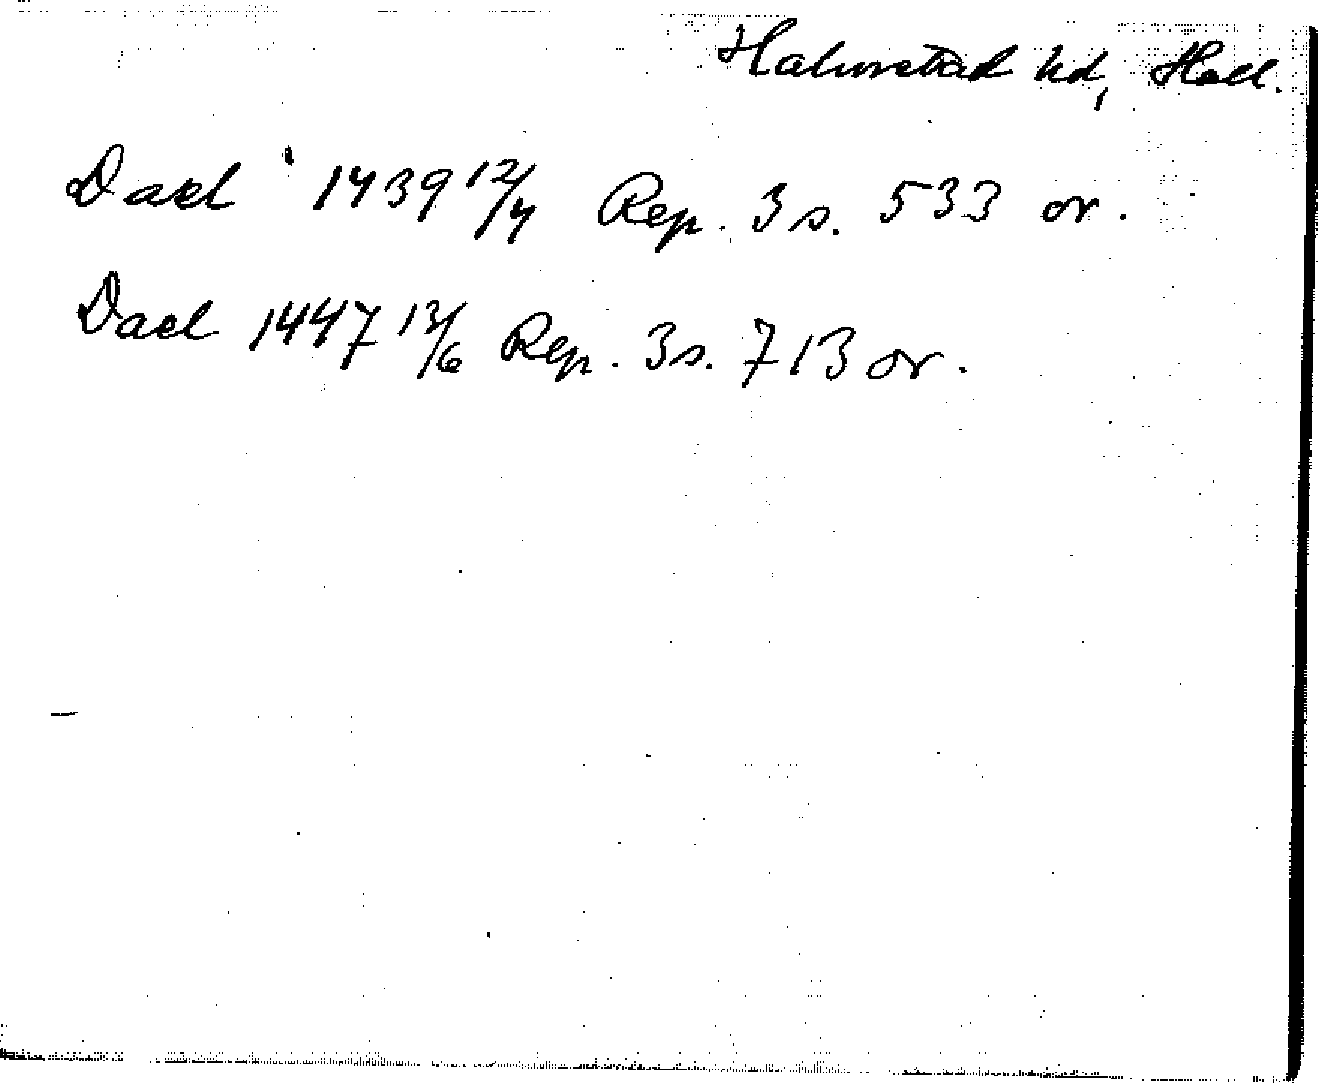 Halmstad hd, Hall.
Dael 1439 12/4 Rep. 3 s. 533 or.
Dael 1447 13/6 Rep. 3 s. 713 or.